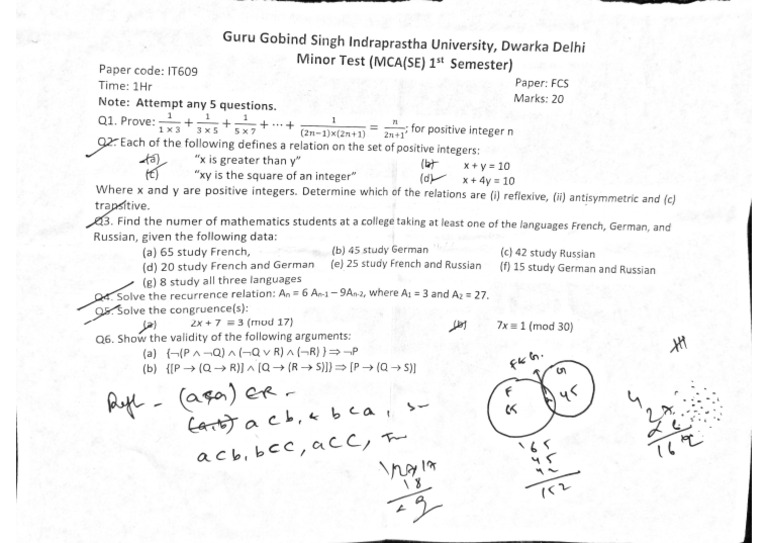 Guru Gobind Singh Indraprastha University, Dwarka Delhi
Minor Test (MCA(SE) 1st Semester)
Paper code: IT609
Paper: FCS
Time: 1Hr
Marks: 20
Note: Attempt any 5 questions.
Q1. Prove: 1/(1 × 3) + 1/(3 × 5) + 1/(5 × 7) + ⋯ + 1/((2n−1)×(2n+1)) = n/(2n+1); for positive integer n
Q2. Each of the following defines a relation on the set of positive integers:
(a) "x is greater than y" (b) x + y = 10
(c) "xy is the square of an integer" (d) x + 4y = 10
Where x and y are positive integers. Determine which of the relations are (i) reflexive, (ii) antisymmetric and (c)
transitive.
Q3. Find the numer of mathematics students at a college taking at least one of the languages French, German, and
Russian, given the following data:
(a) 65 study French, (b) 45 study German (c) 42 study Russian
(d) 20 study French and German (e) 25 study French and Russian (f) 15 study German and Russian
(g) 8 study all three languages
Q4. Solve the recurrence relation: An = 6 An-1 – 9An-2, where A1 = 3 and A2 = 27.
Q5. Solve the congruence(s):
(a) 2x + 7 ≡ 3 (mod 17) (b) 7x ≡ 1 (mod 30)
Q6. Show the validity of the following arguments:
(a) {¬(P ∧ ¬Q) ∧ (¬Q ∨ R) ∧ (¬R) } ⇒ ¬P
(b) {[P → (Q → R)] ∧ [Q → (R → S)]} ⇒ [P → (Q → S)]
F
G
65
45
(a,b)
a c b, b c c, a c c,
165
45
42
152
18